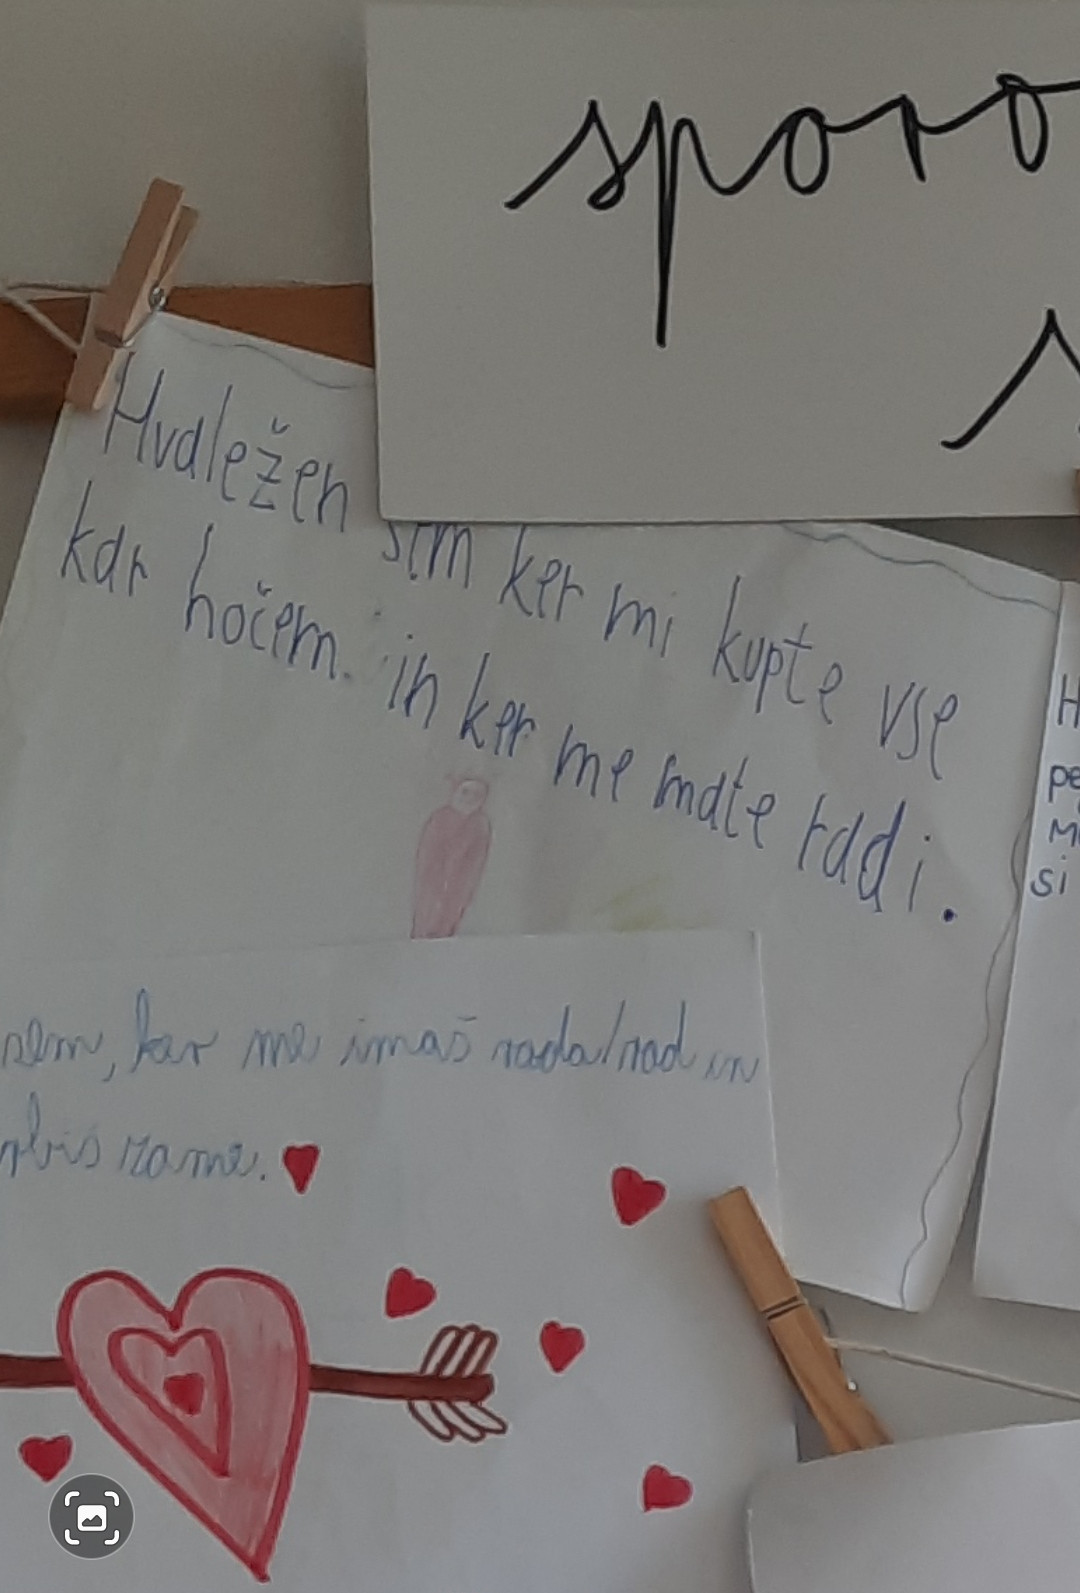 sporo
s
Hvdležen sem ker mi kupte vse
kar hočem. in ker me mate radi.
H
pe
si
sem, ker me imaš rada/rad in
zame.